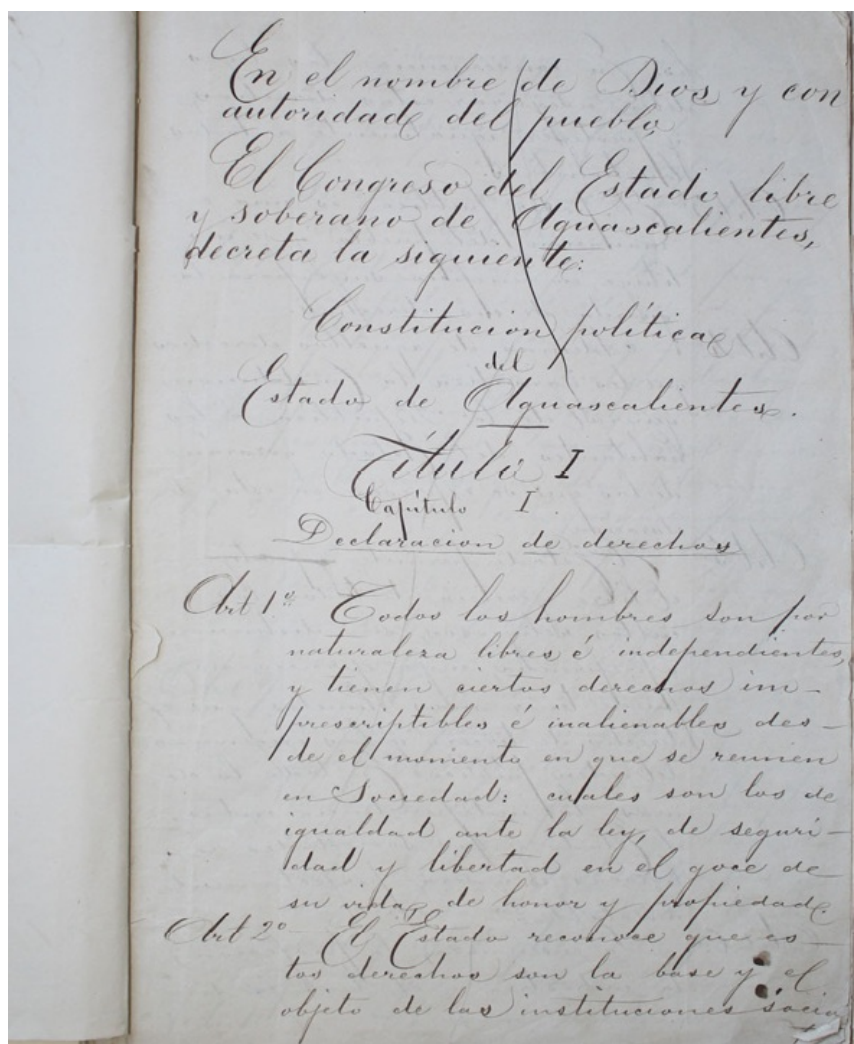 En el nombre de Dios y con
autoridad del pueblo,
El Congreso del Estado libre
y soberano de Aguascalientes,
decreta la siguiente:
Constitucion política
del
Estado de Aguascalientes.
Título I
Capítulo I.
Declaracion de derechos
Art 1º Todos los hombres son por
naturaleza libres é independientes,
y tienen ciertos derechos im-
prescriptibles é inalienables des-
de el momento en que se reunen
en Sociedad: cuales son los de
igualdad ante la ley, de seguri-
dad y libertad en el goce de
su vida, de honor y propiedad.
Art 2º El Estado reconoce que es-
tos derechos son la base y el
objeto de las instituciones socia